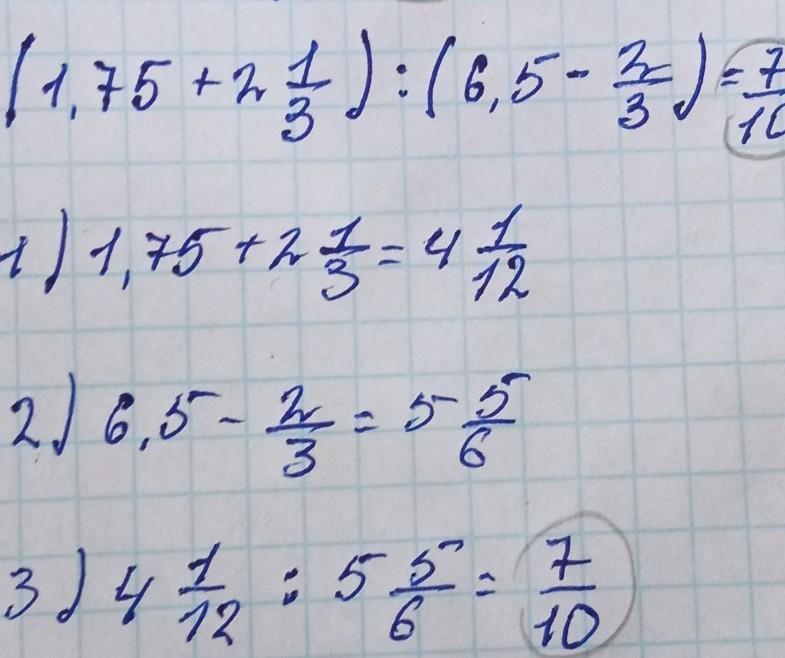 (1,75 + 2 1/3) : (6,5 - 2/3) = 7/10
1) 1,75 + 2 1/3 = 4 1/12
2) 6,5 - 2/3 = 5 5/6
3) 4 1/12 : 5 5/6 = 7/10